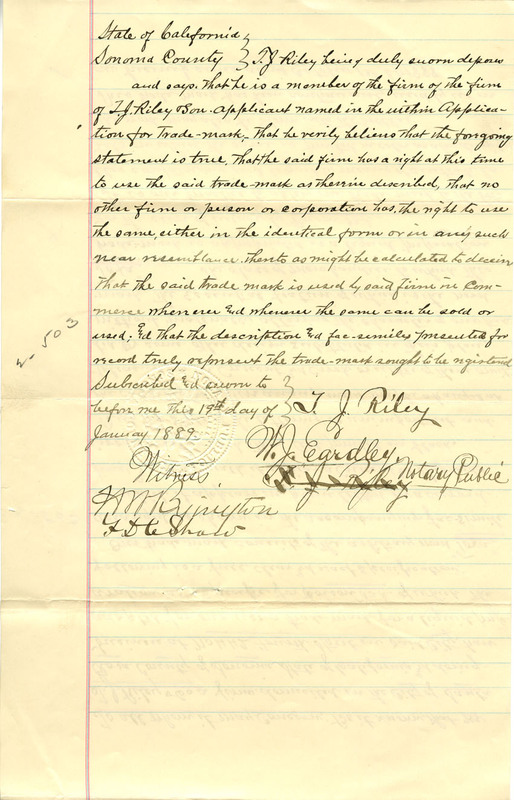 State of California }
Sonoma County } T. J. Riley being duly sworn deposes
and says. that he is a member of the firm of the firm
of T. J. Riley & Son. applicant named in the within Applica-
tion for trade-mark, that he verily believes that the forgoing
statement is true, that the said firm has a right at this time
to use the said trade-mark as therein described, that no
other firm or person or corporation has, the right to use
the same, either in the identical form or in any such
near resemblance. thereto as might be calculated to deceive
that the said trade mark is used by said firm in Com-
merce wherever &d whenever the same can be sold or
used; &d that the description &d fac-similes presented for
record truly represent the trade-mark sought to be registered
Subscribed &d sworn to
before me this 19th day of } T. J. Riley
January 1889.
W. J. Eardley,
Notary Public
Witness
H M Byington
F D Shaw
503